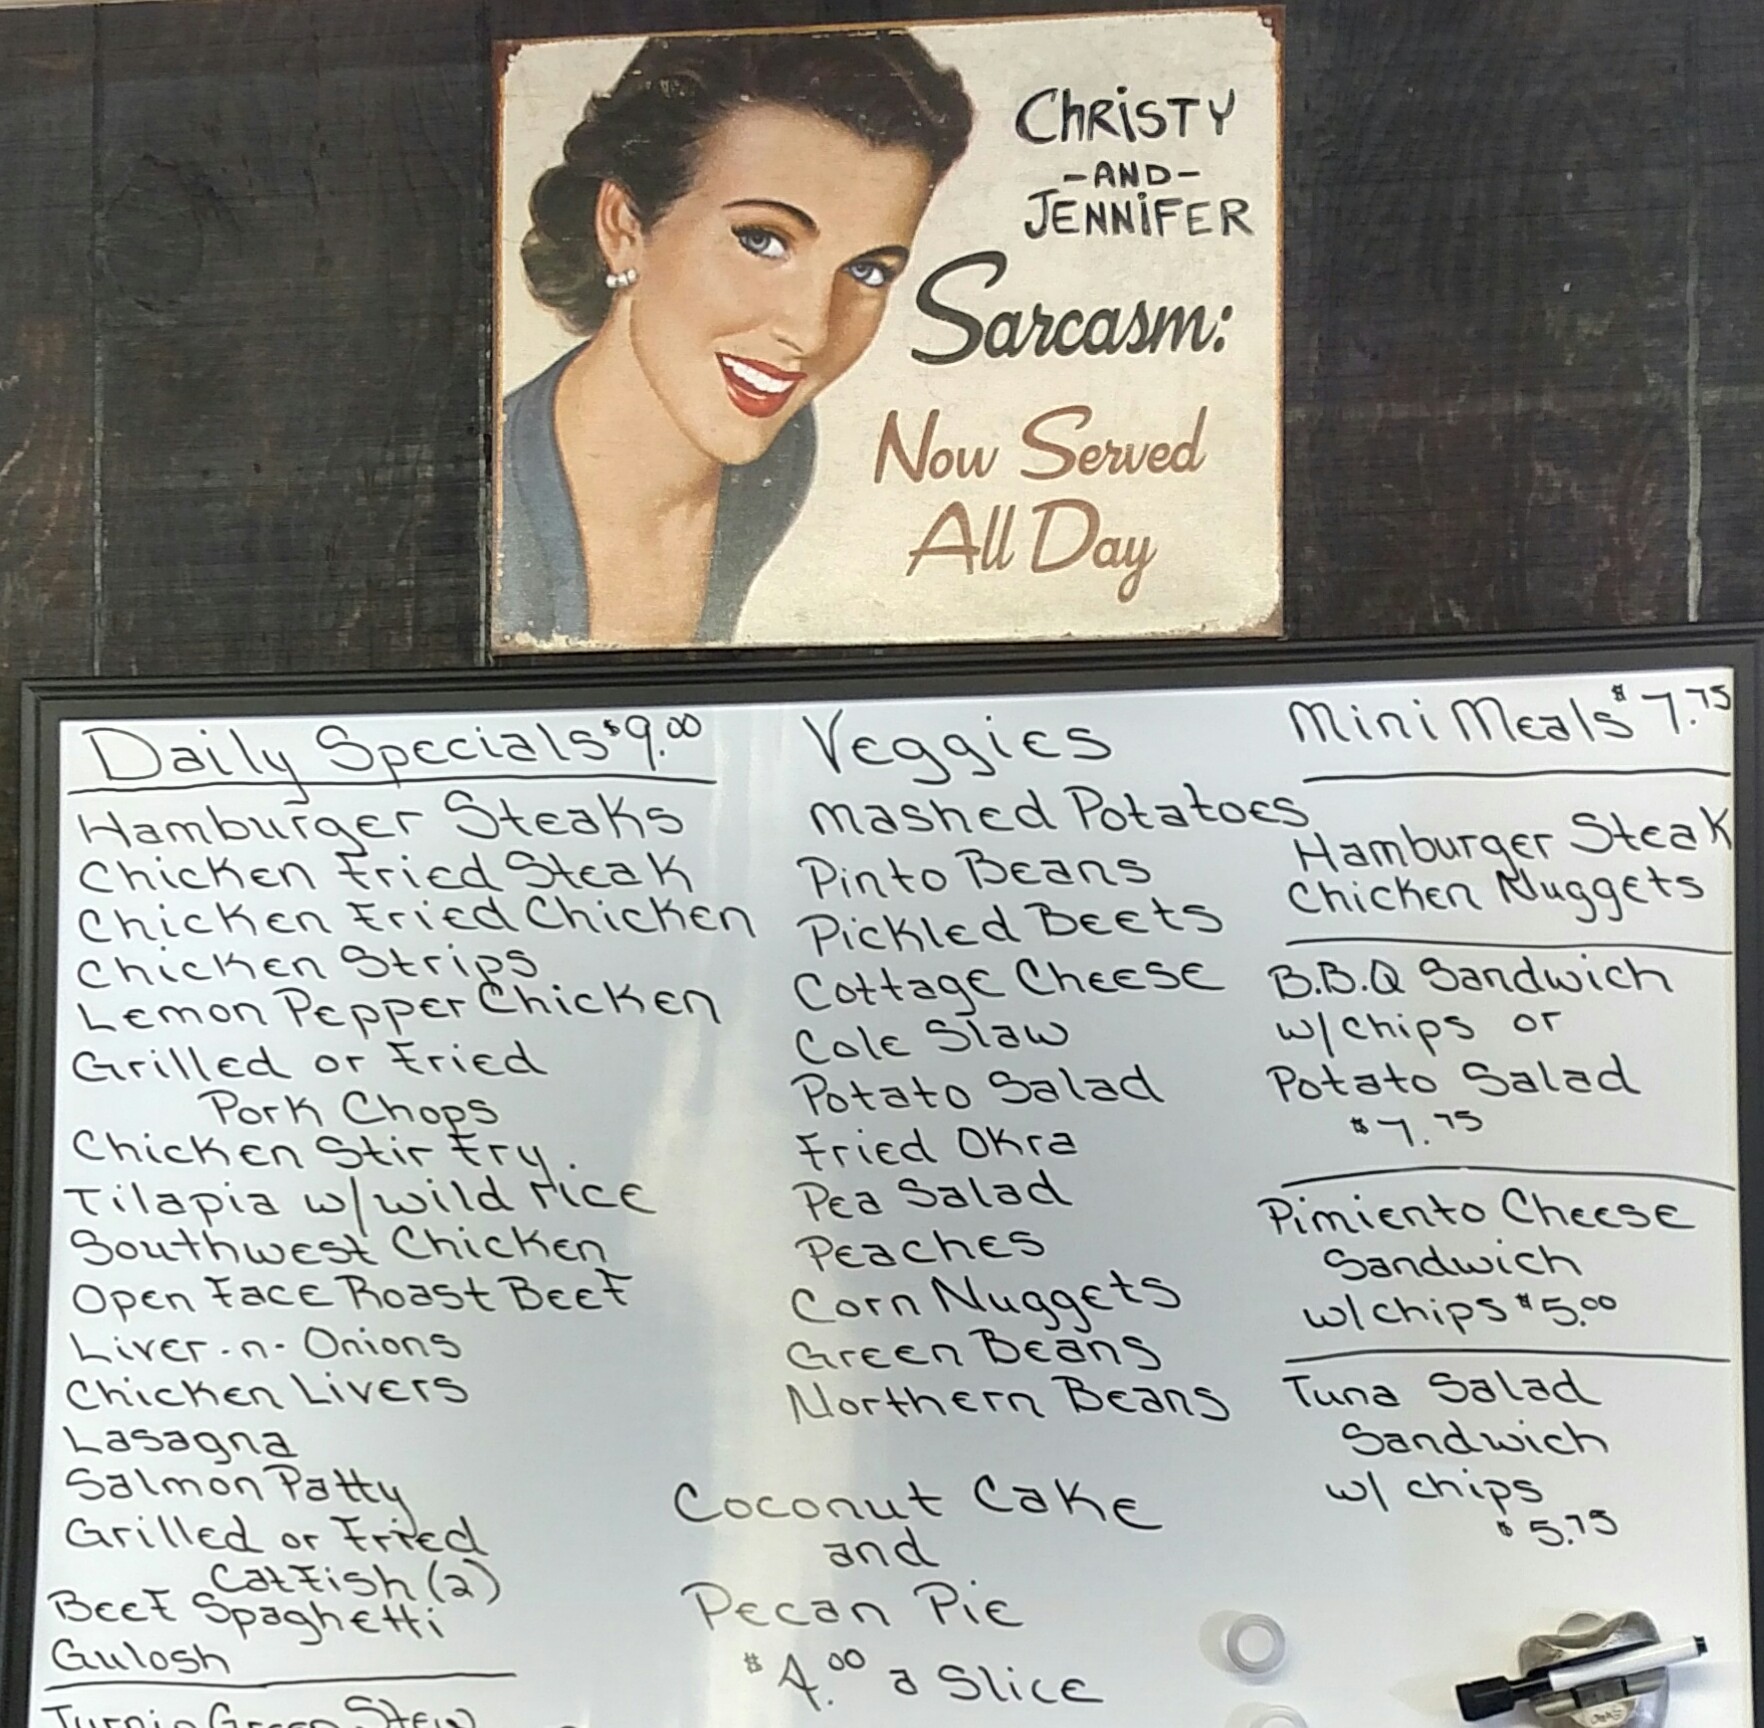 CHRISTY
-AND-
JENNIFER
Sarcasm:
Now Served
All Day
Daily Specials $9.00
Hamburger Steaks
Chicken Fried Steak
Chicken Fried Chicken
Chicken Strips
Lemon Pepper Chicken
Grilled or Fried
Pork Chops
Chicken Stir Fry.
Tilapia w/wild rice
Southwest Chicken
Open Face Roast Beef
Liver-n-Onions
Chicken Livers
Lasagna
Salmon Patty
Grilled or Fried
Catfish (2)
Beef Spaghetti
Gulosh
Turnip Green Stew
Veggies
Mashed Potatoes
Pinto Beans
Pickled Beets
Cottage Cheese
Cole Slaw
Potato Salad
Fried Okra
Pea Salad
Peaches
Corn Nuggets
Green Beans
Northern Beans
Coconut Cake
and
Pecan Pie
$4.00 a Slice
Mini Meals $7.75
Hamburger Steak
Chicken Nuggets
B.B.Q Sandwich
w/chips or
Potato Salad
$7.75
Pimiento Cheese
Sandwich
w/chips $5.00
Tuna Salad
Sandwich
w/ chips
$5.75